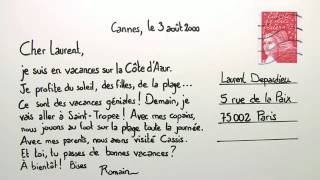 Cannes, le 3 août 2000
Cher Laurent,
je suis en vacances sur la Côte d'Azur.
Je profite du soleil, des filles, de la plage...
Ce sont des vacances géniales! Demain, je
vais aller à Saint-Tropez! Avec mes copains,
nous jouons au foot sur la plage toute la journée.
Avec mes parents, nous avons visité Cassis.
Et toi, tu passes de bonnes vacances?
À bientôt! Bises
Romain
Laurent Depardieu
5 rue de la Paix
75002 Paris